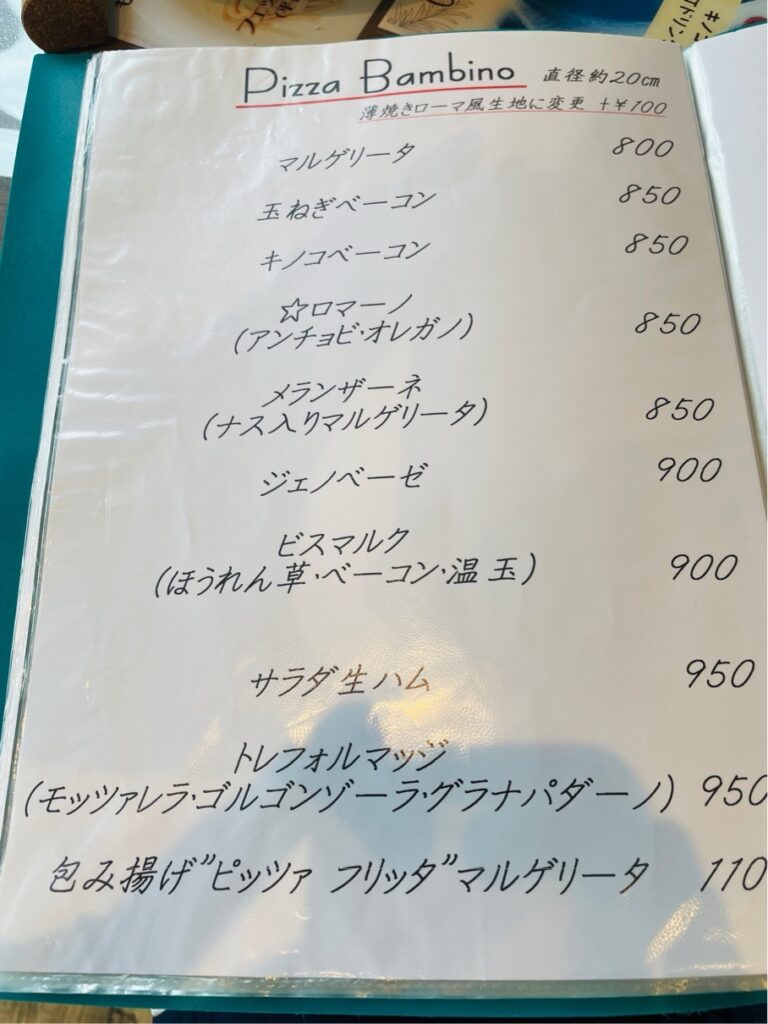 Pizza Bambino 直径約20cm
薄焼きローマ風生地に変更 +¥100
マルゲリータ 800
玉ねぎベーコン 850
キノコベーコン 850
☆ロマーノ
(アンチョビ・オレガノ) 850
メランザーネ
(ナス入りマルゲリータ) 850
ジェノベーゼ 900
ビスマルク
(ほうれん草・ベーコン・温玉) 900
サラダ生ハム 950
トレフォルマッジ
(モッツァレラ・ゴルゴンゾーラ・グラナパダーノ) 950
包み揚げ"ピッツァ フリッタ"マルゲリータ 110